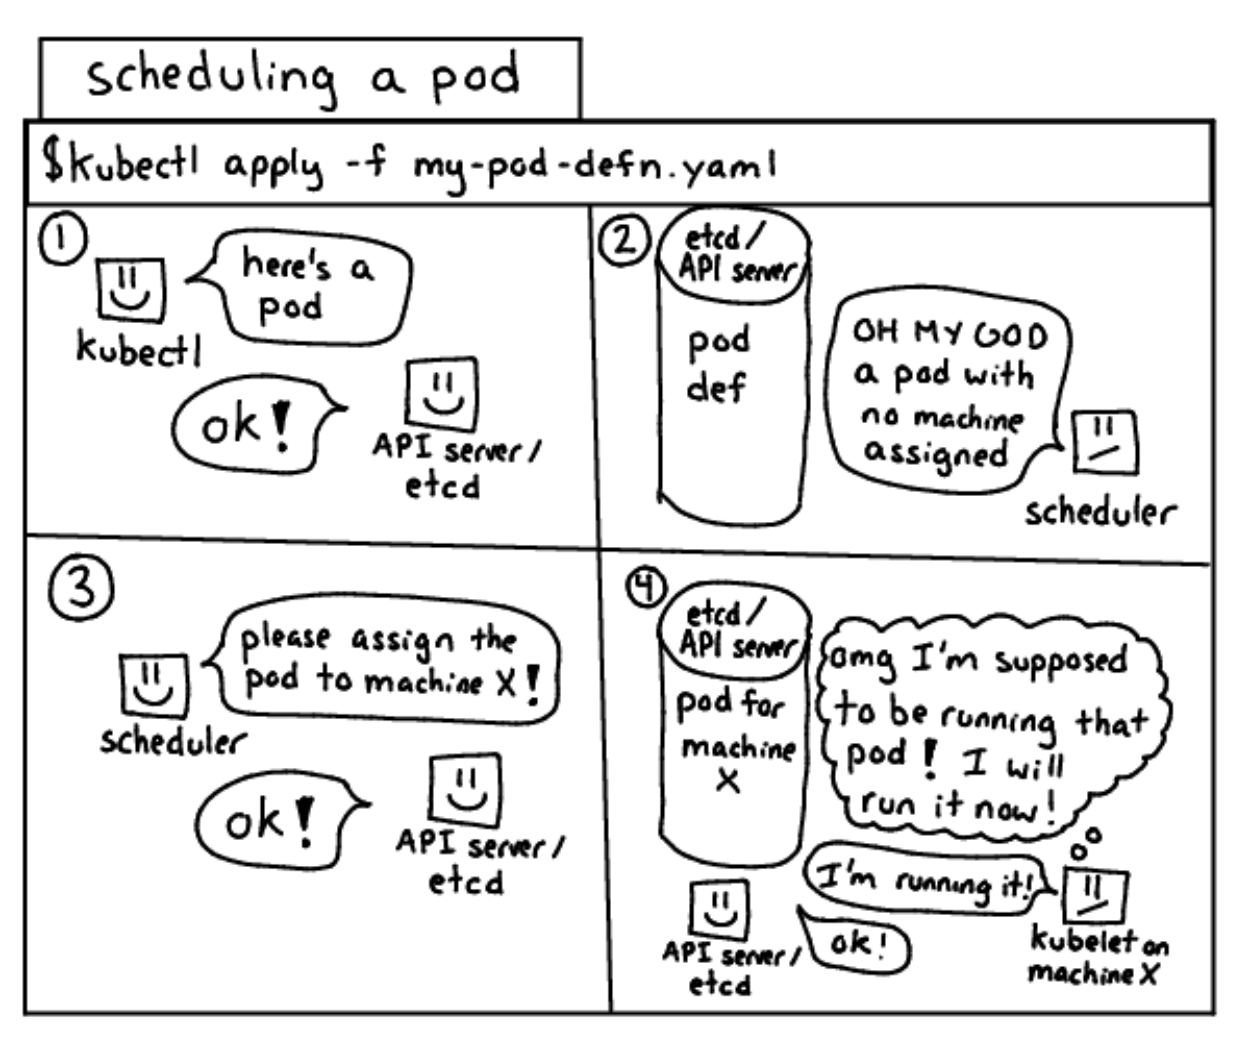 scheduling a pod
$kubectl apply -f my-pod-defn.yaml
1
here's a
pod
kubectl
ok!
API server/
etcd
2
etcd/
API server
pod
def
OH MY GOD
a pod with
no machine
assigned
scheduler
3
please assign the
pod to machine X!
scheduler
ok!
API server/
etcd
4
etcd/
API server
pod for
machine
X
omg I'm supposed
to be running that
pod! I will
run it now!
I'm running it!
kubelet on
machine X
ok!
API server/
etcd